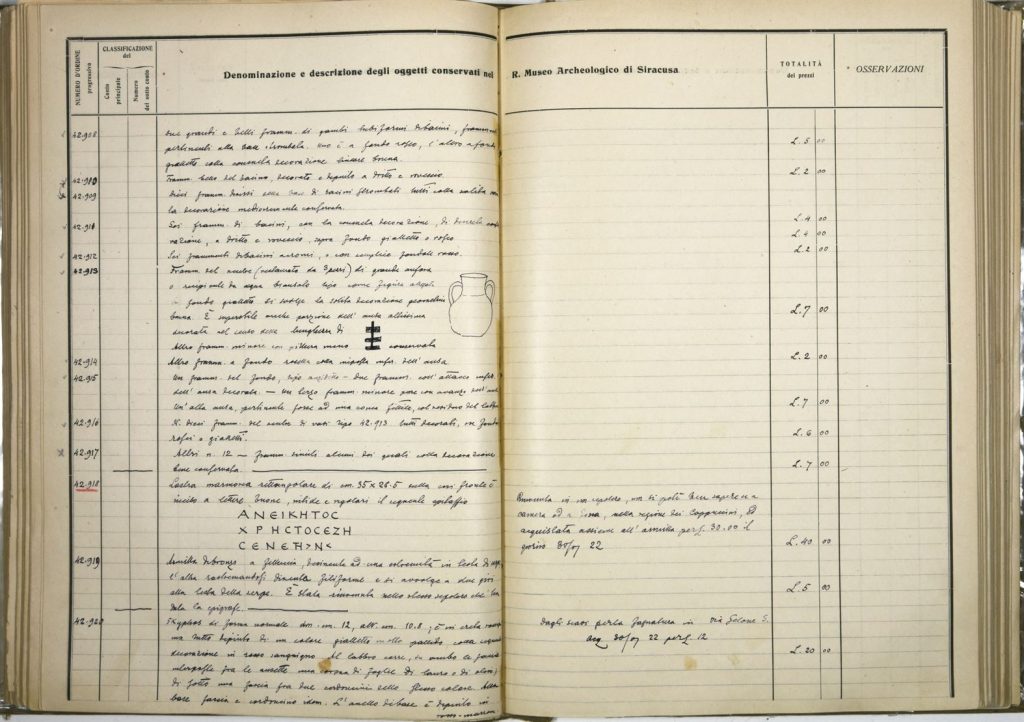 NUMERO D'ORDINE
progressivo
CLASSIFICAZIONE
del
Conto
principale
Numero
del sotto conto
Denominazione e descrizione degli oggetti conservati nel R. Museo Archeologico di Siracusa
TOTALITÀ
dei prezzi
OSSERVAZIONI
42.908 due grandi e belli framm. di bacini, framm.
pertinenti alla base strombata. Uno è a fondo rosso, l'altro a fondo
gialletto colla consueta decorazione lineare bruna. L. 5 00
42.910 Framm. bello del bacino, decorato e dipinto a dritto e rovescio. L. 2 00
42.909 Dieci framm. delle basi di bacini strombati tutti colla solita
la decorazione mediocremente conservata. L. 4 00
42.911 Sei framm. di bacini, con la consueta decorazione, di discreta
a dritto e rovescio, sopra fondo gialletto o rosso L. 4 00
42.912 Sei frammenti di bacini acromi, o con semplice fondale rosso. L. 2 00
42.913 Framm. del ventre (restaurato da pezzi) di grande anfora
o recipiente da acqua biansato tipo come figura
fondo gialletto si svolge la solita decorazione geometrica
bruna. È superstite anche porzione dell'ansa
decorata nel senso della lunghezza di L. 7 00
Altro framm. minore con pittura meno conservata
42.914 Altro framm. a fondo rosetta colla risposta infer. dell'ansa L. 2 00
42.915 Un framm. del fondo, tipo — due framm. coll'attacco infer.
dell'ansa decorata. — Un terzo framm. minore pure con avanzo
Un'altra ansa, pertinente forse ad una conca fittile, col residuo del labbro L. 7 00
42.916 N. dieci framm. del ventre di vasi tipo 42.913 tutti decorati, su fondo
rosso o gialletti. L. 6 00
42.917 Altri n. 12 — framm. simili alcuni dei quali colla decorazione
bene conservata. L. 7 00
42.918 Lastra marmorea rettangolare di cm. 35 x 28.5 nella cui fronte è
inciso a lettere buone, nitide e regolari il seguente epitaffio
ΑΝΕΙΚΗΤΟC
ΧΡΗCΤΟCΕΖΗ
CΕΝΕΤΗ
Rinvenuta in un sepolcro, non si potè ben sapere se a
camera od a fossa, nella regione dei Cappuccini, ed
acquistata assieme all'armilla per £. 30.00 il
giorno 22 L. 40 00
42.919 Armilla di bronzo a fettuccia, desinente ad una estremità in testa di serpe
l'altra filiforme e si avvolge a due giri
alla testa della serpe. È stata rinvenuta nello stesso sepolcro che
la epigrafe. L. 5 00
42.920 Skyphos di forma normale dm. cm. 12, alt. cm. 10.8; è in creta
ma tutto dipinto di un colore gialletto molto pallido colla seguente
decorazione in rosso sanguigno. Al labbro corre, in ambo le faccie
fra le ansette una corona di foglie di lauro o di olivo;
di sotto una fascia fra due cordoncini nello stesso colore. Alla
base fascia e cordoncino idem. L'anello di base è dipinto in
rosso-marrone
Dagli scavi per la fognatura in via Gelone S.
acq. 22 per £. 12 L. 20 00